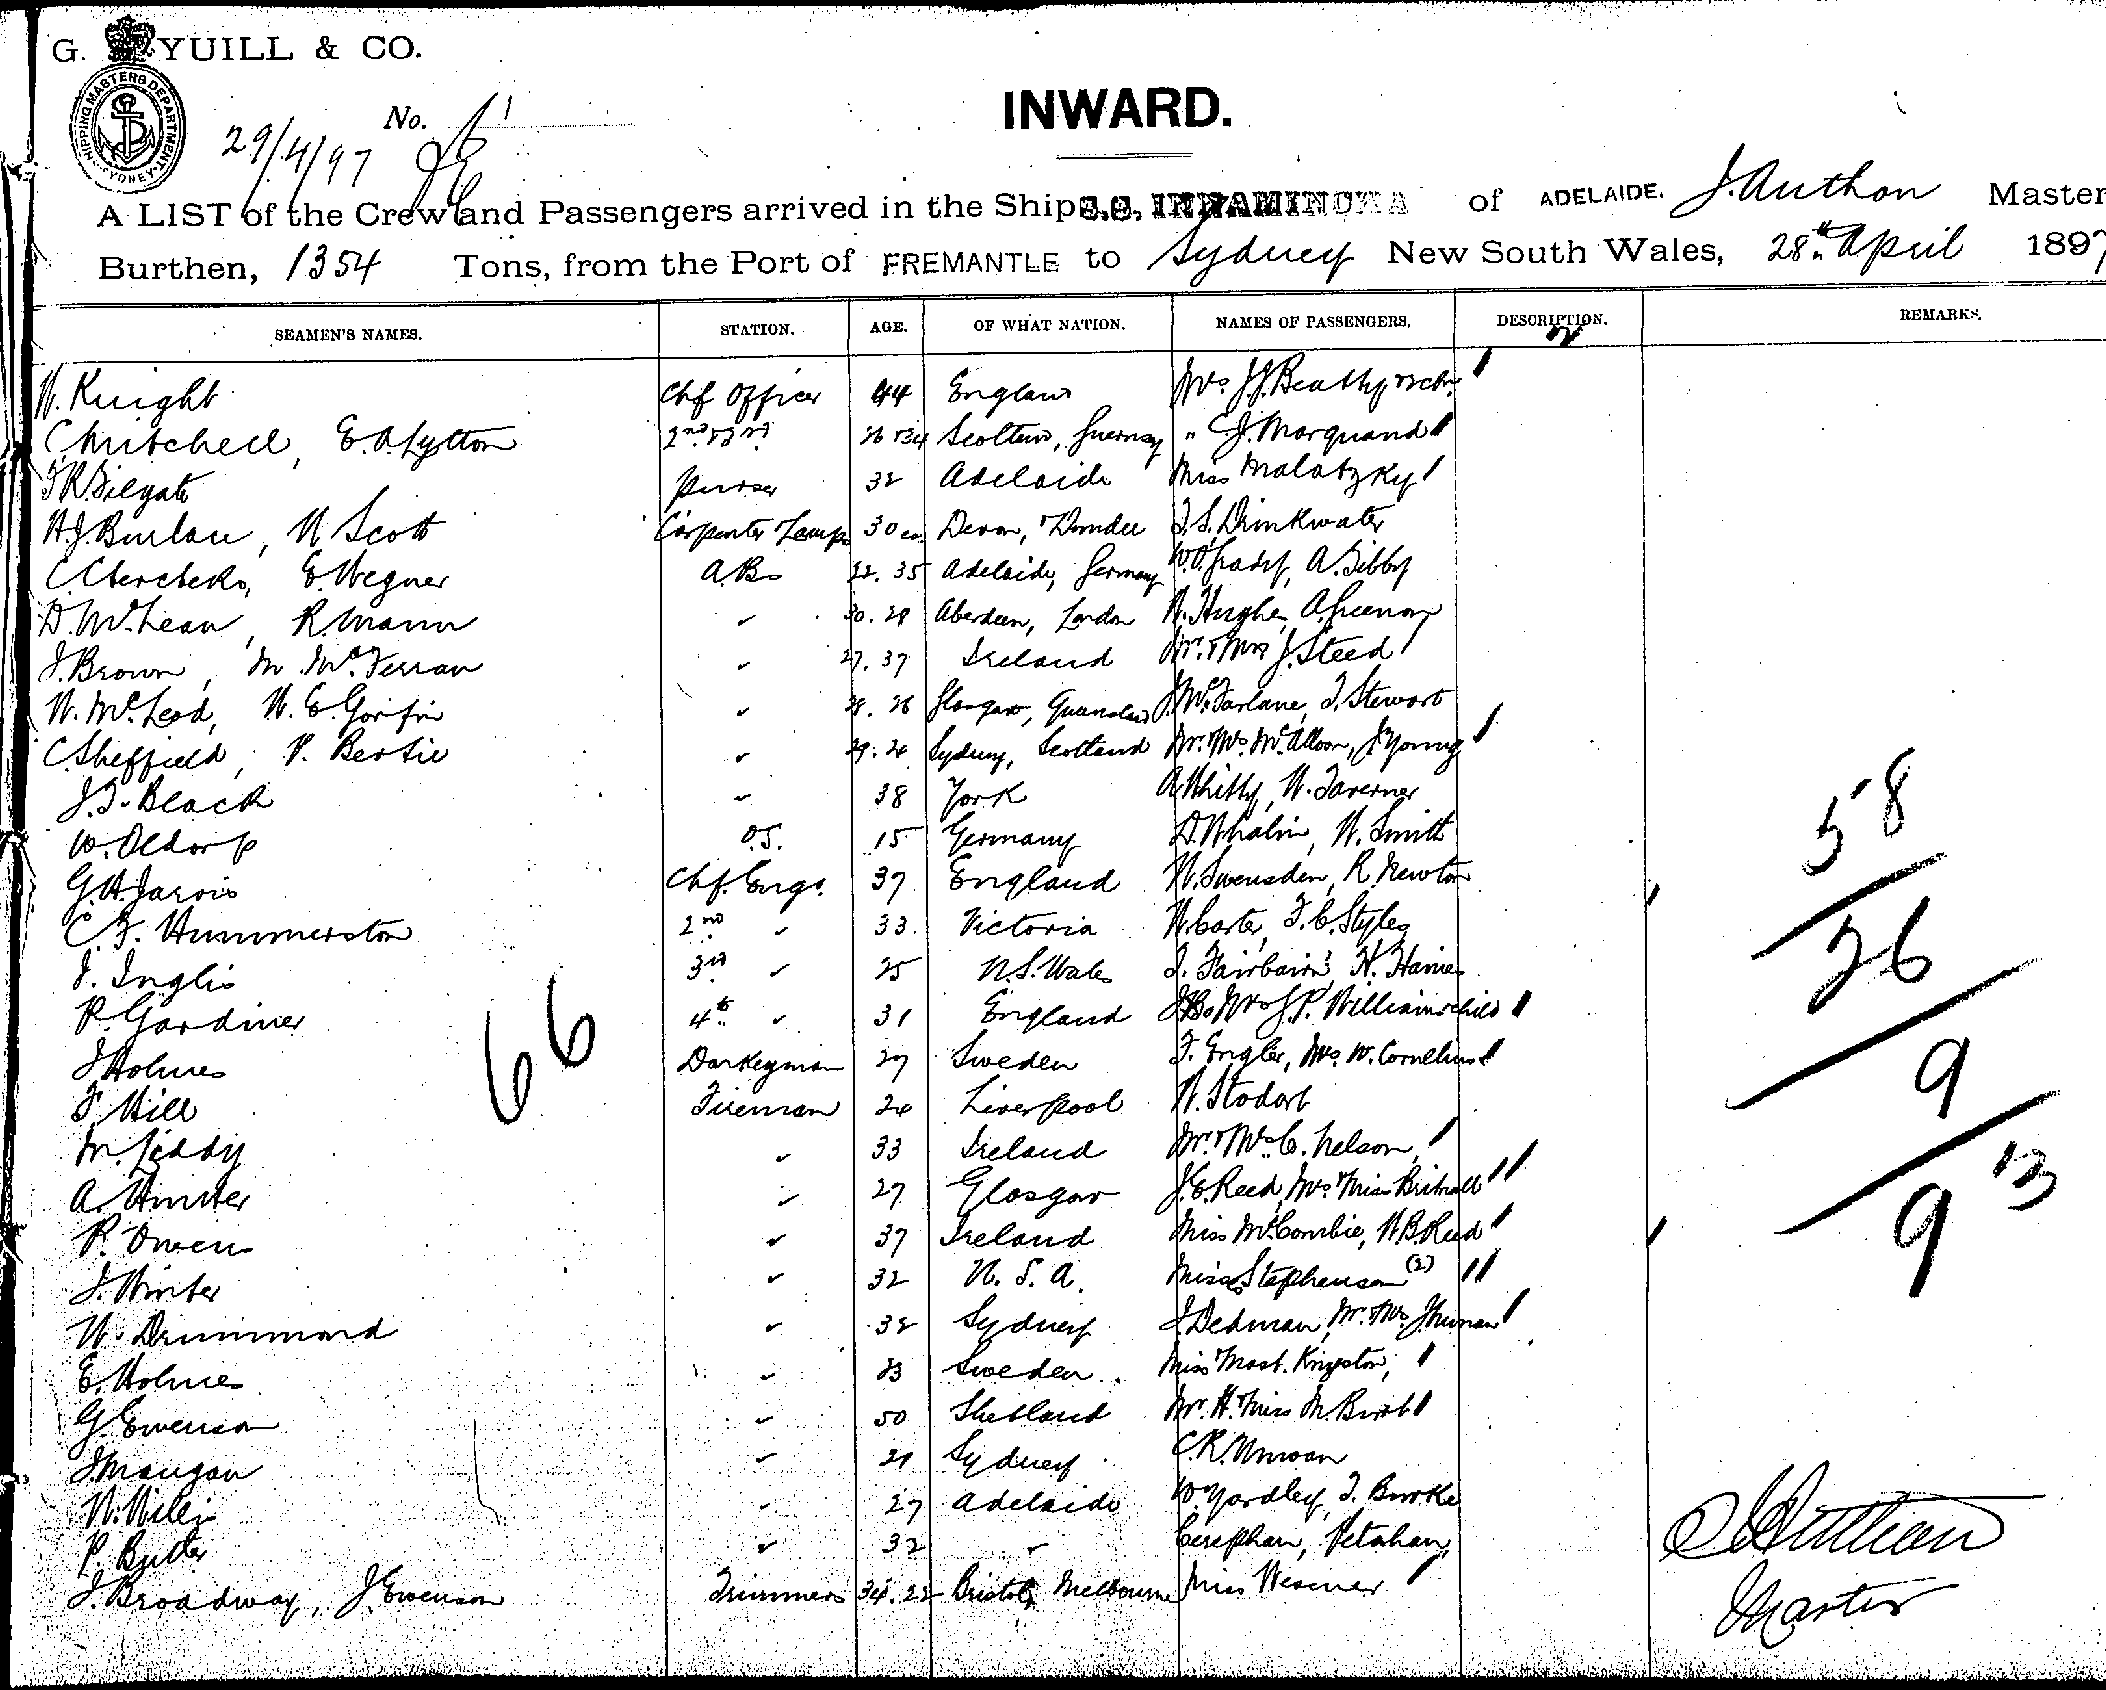 G. YUILL & CO.
SHIPPING MASTERS DEPARTMENT SYDNEY
No.
29/4/97
INWARD.
A LIST of the Crew and Passengers arrived in the Ship S.S. INNAMINCKA of ADELAIDE. J. Authon Master
Burthen, 1354 Tons, from the Port of FREMANTLE to Sydney New South Wales, 28th April 1897
SEAMEN'S NAMES. STATION. AGE. OF WHAT NATION. NAMES OF PASSENGERS. DESCRIPTION. REMARKS.
W. Knight Chf Officer 44 England Mrs J.J. Beatty
C. Mitchell, E.A. Lytton 2nd & 3rd 26 & 24 Scotland, Guernsey " C.J. Marquand
Purser 32 Adelaide Miss Malatzky
H.J. Burlace, W. Scott Carpenter & Lamps 30 Devon, Dundee T.S. Drinkwater
E. Wegner A.B. 22. 35 Adelaide, Germany W.O. Grady, A. Gibby
D. McLean, R. Mann " 30. 28 Aberdeen, London W. Hughes, A. Greenay
J. Brown, M. McFerran " 27. 37 Ireland Mr & Mrs J. Steed
W. McLeod, W.E. Griffin " 28. 26 Glasgow, Queensland J. McFarlane, T. Stewart
C. Sheffield, P. Bertie " 29. 24 Sydney, Scotland Mr & Mrs McAlloon, J. Young
J.T. Black " 38 York A. Whitty, W. Taverner
W. Oldorp O.S. 15 Germany D. Whalin, W. Smith
G.H. Jarvis Chf. Engr. 37 England W. Swensden, R. Newton
C.F. Hummerston 2nd " 33 Victoria W. Carter, F.C. Styles
J. Inglis 3rd " 25 N.S. Wales T. Fairbairn, H. Haines
R. Gardiner 4th " 31 England Mrs J.P. William & child
J. Holmes Donkeyman 27 Sweden F. Engler, Mrs W. Cornelius
F. Hill Fireman 24 Liverpool W. Stodart
M. Liddy " 33 Ireland Mr & Mrs C. Nelson,
A. Hunter " 27 Glasgow J.E. Reed, Mrs & Miss Britnall
P. Owens " 37 Ireland Miss McCombie, W.B. Reed
J. Winter " 32 U.S.A. Misses Stephenson (2)
W. Drummond " 32 Sydney J. Dedman, Mr & Mrs
E. Holmes " 23 Sweden Miss & Mast. Kingston,
G. Ewenson " 50 Shetland Mr H. & Miss M. Birt
J. Mangan " 21 Sydney C.R. Unwan
W. Willis " 27 Adelaide W. Yardley, T. Burke
P. Butler " 32 " Cerephan, Petahan,
J. Broadway, J. Ewenson Trimmers 34. 22 Bristol, Melbourne Miss Wesener
66
58
26
9
9 13
J. Authon
Master